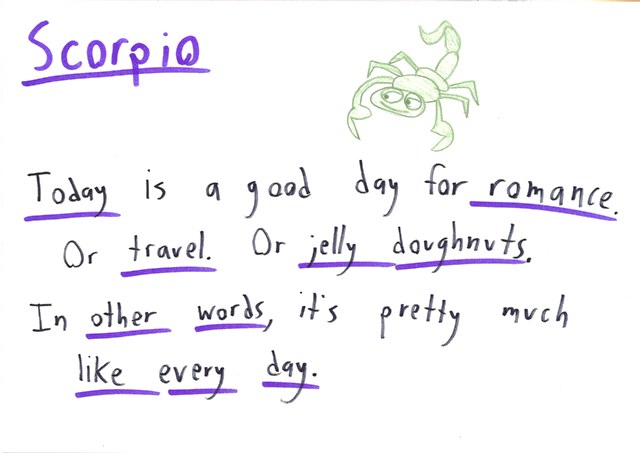 Scorpio
Today is a good day for romance.
Or travel. Or jelly doughnuts.
In other words, it's pretty much
like every day.